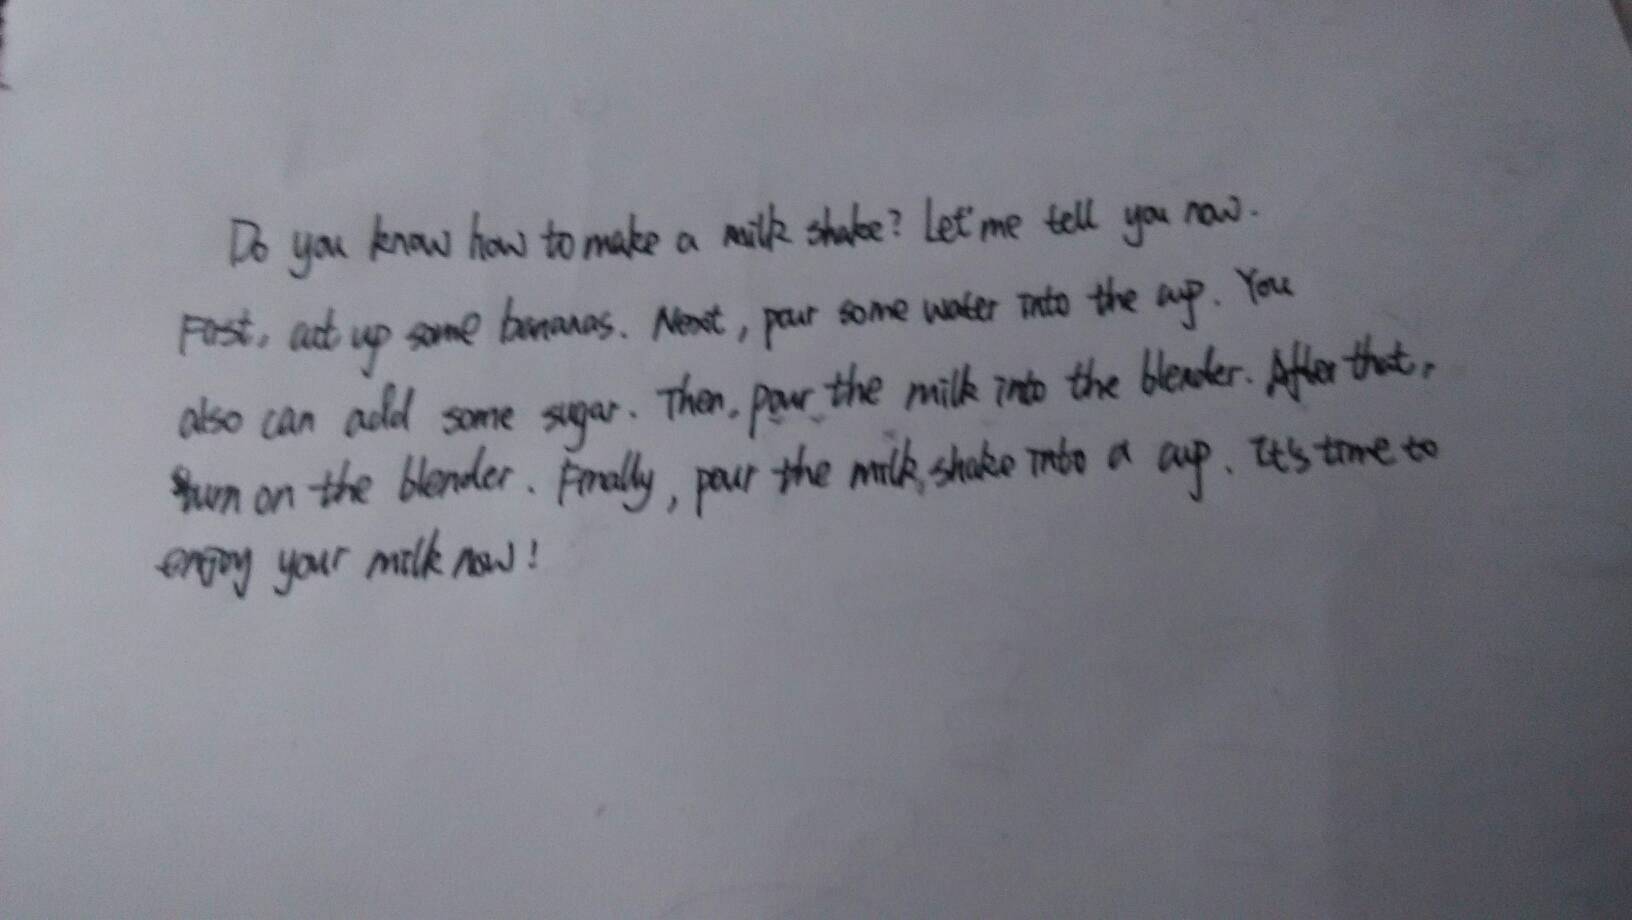 Do you know how to make a milk shake? Let me tell you now.
First, cut up some bananas. Next, pour some water into the cup. You
also can add some sugar. Then, pour the milk into the blender. After that,
turn on the blender. Finally, pour the milk shake into a cup. It's time to
enjoy your milk now!